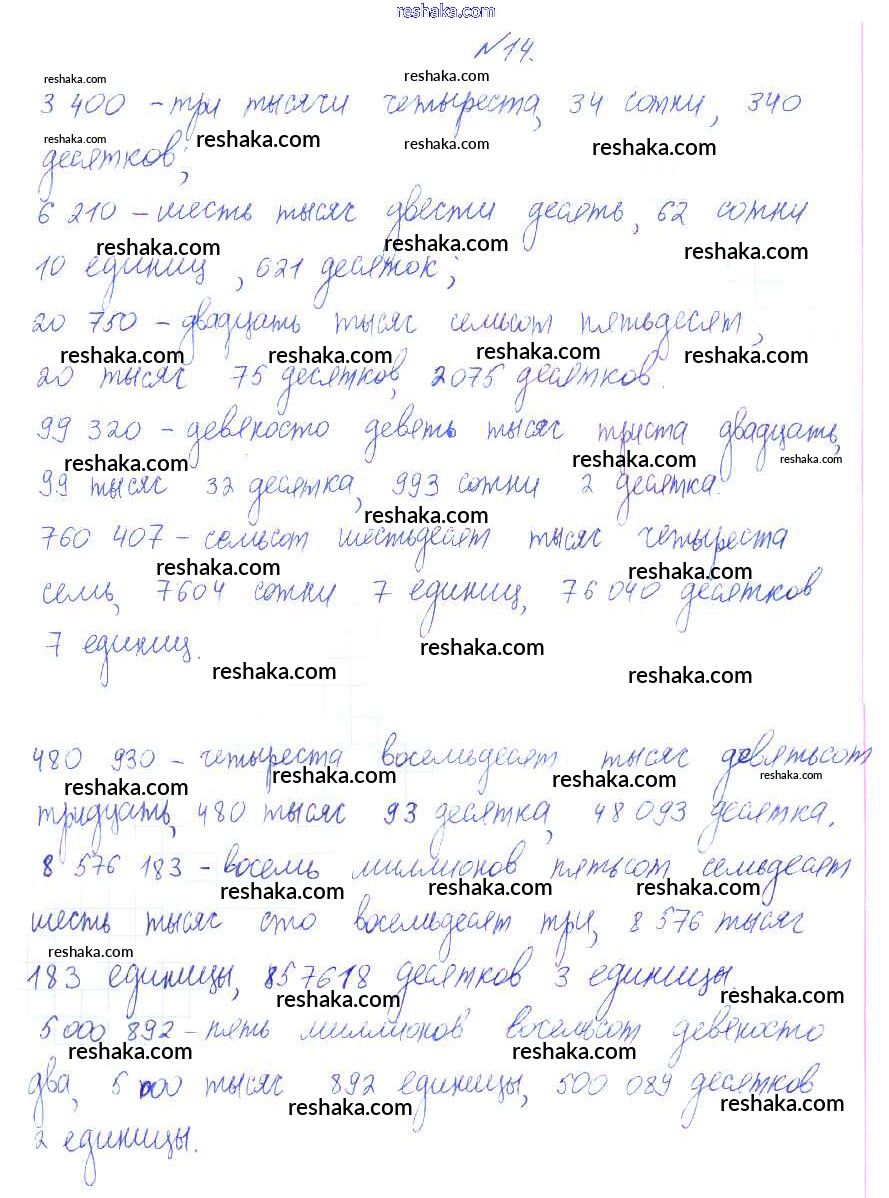 reshaka.com
№14.
reshaka.com reshaka.com
3 400 – три тысячи четыреста, 34 сотни, 340
reshaka.com reshaka.com reshaka.com reshaka.com
десятков;
6 210 – шесть тысяч двести десять, 62 сотни
reshaka.com reshaka.com reshaka.com
10 единиц, 621 десяток;
20 750 – двадцать тысяч семьсот пятьдесят,
reshaka.com reshaka.com reshaka.com reshaka.com
20 тысяч 75 десятков, 2075 десятков.
99 320 – девяносто девять тысяч триста двадцать,
reshaka.com reshaka.com reshaka.com
99 тысяч 32 десятка, 993 сотни 2 десятка.
reshaka.com
760 407 – семьсот шестьдесят тысяч четыреста
reshaka.com reshaka.com
семь, 7604 сотни 7 единиц, 76 040 десятков
7 единиц.
reshaka.com reshaka.com reshaka.com
480 930 – четыреста восемьдесят тысяч девятьсот
reshaka.com reshaka.com reshaka.com reshaka.com
тридцать, 480 тысяч 93 десятка, 48 093 десятка.
8 576 183 – восемь миллионов пятьсот семьдесят
reshaka.com reshaka.com reshaka.com
шесть тысяч сто восемьдесят три, 8 576 тысяч
reshaka.com
183 единицы, 857618 десятков 3 единицы.
reshaka.com reshaka.com
5 000 892 – пять миллионов восемьсот девяносто
reshaka.com reshaka.com
два, 5 000 тысяч 892 единицы, 500 089 десятков
reshaka.com reshaka.com
2 единицы.